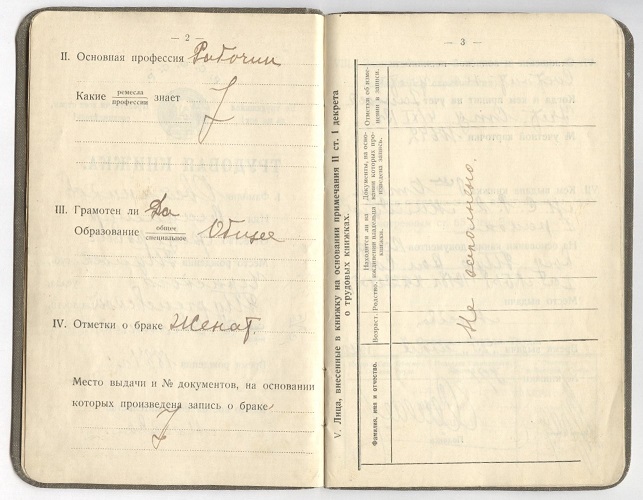 — 2 —
II. Основная профессия Рабочий
Какие ремесла
профессии знает
III. Грамотен ли Да
Образование общее
специальное Общее
IV. Отметки о браке Женат
Место выдачи и № документов, на основании
которых произведена запись о браке
— 3 —
V. Лица, внесенные в книжку на основании примечания II ст. I декрета
о трудовых книжках.
Фамилия, имя и отчество.
Возраст.
Родство.
Находится ли на
иждивении владельца
книжки.
Документы, на осно-
вании которых про-
изведена запись.
Отметки об изме-
нении в записи.
Не заполнено.
ТРУДОВАЯ КНИЖКА.